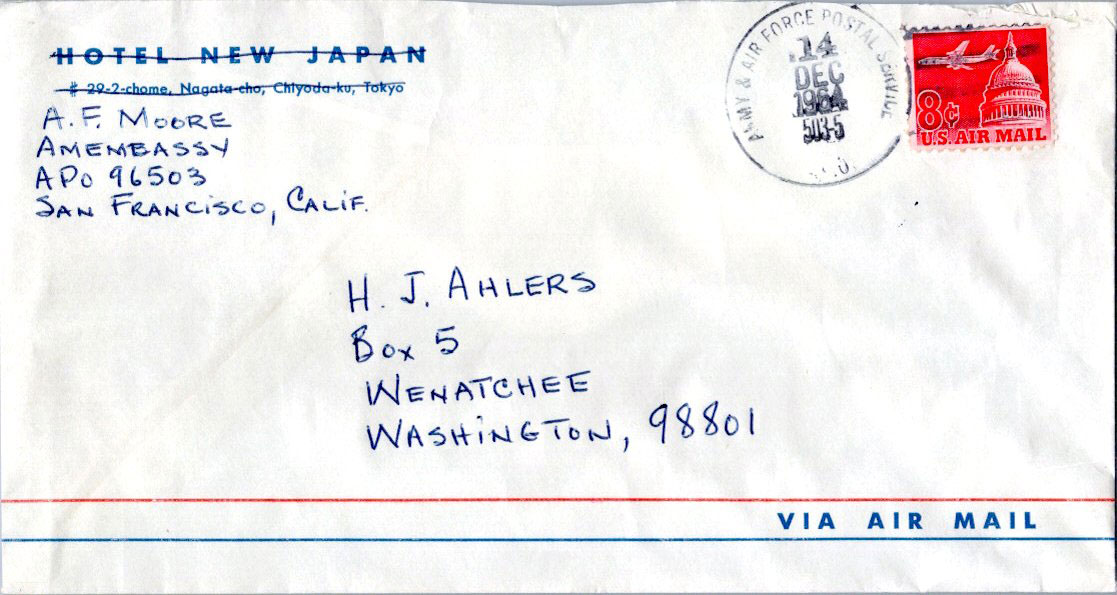 HOTEL NEW JAPAN
# 29-2-chome, Nagata-cho, Chiyoda-ku, Tokyo
A. F. MOORE
AMEMBASSY
APO 96503
SAN FRANCISCO, CALIF.
ARMY & AIR FORCE POSTAL SERVICE
14
DEC
1964
503-5
8¢
U.S. AIR MAIL
H. J. AHLERS
BOX 5
WENATCHEE
WASHINGTON, 98801
VIA AIR MAIL